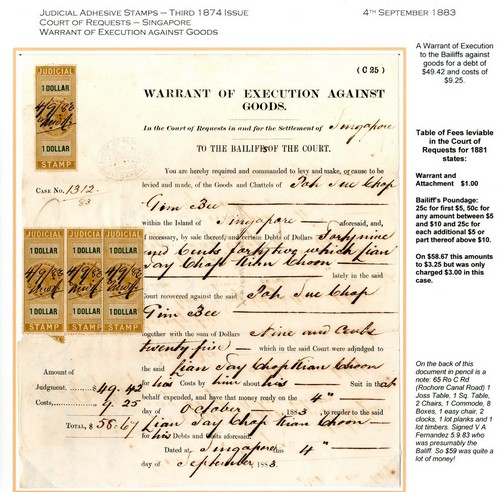 JUDICIAL ADHESIVE STAMPS – THIRD 1874 ISSUE
COURT OF REQUESTS – SINGAPORE
WARRANT OF EXECUTION AGAINST GOODS
4TH SEPTEMBER 1883
A Warrant of Execution
to the Bailiffs against
goods for a debt of
$49.42 and costs of
$9.25.
Table of Fees leviable
in the Court of
Requests for 1881
states:
Warrant and
Attachment $1.00
Bailiff's Poundage:
25c for first $5, 50c for
any amount between $5
and $10 and 25c for
each additional $5 or
part thereof above $10.
On $58.67 this amounts
to $3.25 but was only
charged $3.00 in this
case.
On the back of this
document in pencil is a
note: 65 Ro C Rd
(Rochore Canal Road) 1
Joss Table, 1 Sq. Table,
2 Chairs, 1 Commode, 8
Boxes, 1 easy chair, 2
clocks, 1 lot planks and 1
lot timbers. Signed V A
Fernandez 5.9.83 who
was presumably the
Baliff. So $59 was quite a
lot of money!
JUDICIAL
1 DOLLAR
4/9/83
1 DOLLAR
STAMP
(C 25)
WARRANT OF EXECUTION AGAINST
GOODS.
In the Court of Requests in and for the Settlement of Singapore
TO THE BAILIFFS OF THE COURT.
CASE No. 1312.
83
You are hereby required and commanded to levy and make, or cause to be
levied and made, of the Goods and Chattels of Tah Sue Chop
Tim Bee
within the Island of Singapore aforesaid, and,
if necessary, by sale thereof, and certain Debts of Dollars Forty nine
and Cents forty two which Lian
Tay Chop Kian Choon lately in the said
Court recovered against the said Tah Sue Chop
Tim Bee
together with the sum of Dollars Nine and Cents
twenty five which in the said Court were adjudged to
the said Lian Tay Chop Kian Choon
for his Costs by him about his Suit in that
behalf expended, and have that money ready on the 4th
day of October 1883, to render to the said
Lian Tay Chop Kian Choon
for his Debts and Costs aforesaid.
Dated at Singapore this 4th
day of September, 1883.
JUDICIAL JUDICIAL JUDICIAL
1 DOLLAR 1 DOLLAR 1 DOLLAR
4/9/83 4/9/83 4/9/83
1 DOLLAR 1 DOLLAR 1 DOLLAR
STAMP STAMP STAMP
Amount of
Judgment, $ 49.42
Costs, 9.25
TOTAL, $ 58.67